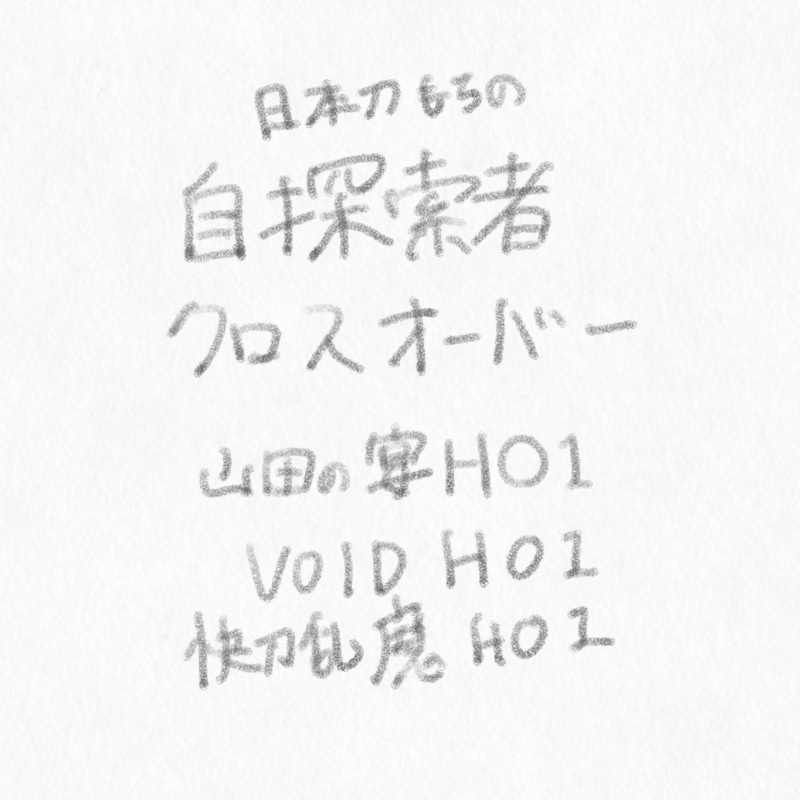 日本刀もちの
自探索者
クロスオーバー
山田の宴HO1
VOID HO1
快刀乱魔 HO1